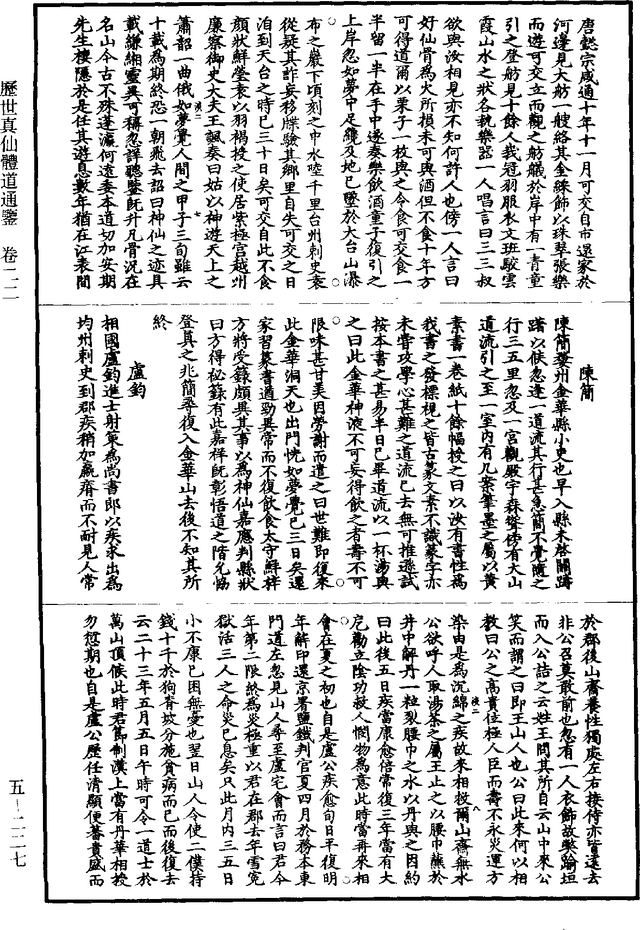 歷世真仙體道通鑒　卷二二
五—二二七
唐懿宗咸通十年十一月可交自市還家於
河邊見大舫一艘絡其金綵飾以珠翠張樂
而遊可交立而觀之舫艤於岸中有一青童
引之登舫見十餘人峨冠羽服衣文斑駮雲
霞山水之狀各執樂器一人唱言曰三三叔
欲與汝相見亦不知何許人也傍一人言曰
好仙骨為火所損未可與酒但不食十年方
可得道爾以栗子一枚與之令食可交食一
半留一半在手中遂奏樂飲酒童子復引之
上岸忽如夢中足纔及地已墜於天台山瀑
布之巖下頃刻之中水陸千里台州刺史袁
從疑其詐妄移牒驗其鄉里自失可交之日
洎到天台之時已三十日矣可交自此不食
顏狀鮮瑩袁以羽褐授之使居紫極宮越州
廉察御史大夫王諷奏曰姑以神遊天上之
簫韶一曲俄如夢覺人間之甲子三旬雖云
十載為期終恐一朝飛去詔曰神仙之迹具
載縑緗靈異可稱忽詳聽鑒既升凡骨況在
名山今古不殊蓬瀛何遠委本道切加安期
先生棲隱於是任其遊息數年猶在江表間
陳簡
陳簡婺州金華縣小吏也早入縣未啓關躊
躇以候忽逢一道流其行甚急簡不覺隨之
行三五里忽及一宮觀殿宇森聳傍有大山
道流引之至一室內有几案筆墨之屬以黃
素書一卷紙十餘幅授之曰以汝有書性為
我書之發標視之皆古篆文素不識篆字亦
未嘗攻學心甚難之道流已去無可推遜試
按本書之甚易半日已畢道流以一杯湯與
之曰此金華神液不可妄得飲之者壽不可
限味甚甘美因勞謝而遣之曰世難即復來
此金華洞天也出門恍如夢覺已三日矣還
家習篆書遒勁異常而不復飲食太守鮮祥
方將受籙頗異其事以為神仙嘉應判縣狀
曰方得秘籙有此嘉祥既彰悟道之階允協
登真之兆簡尋復入金華山去後不知其所
終
盧鈞
相國盧鈞進士射策為尚書郎以疾求出為
均州刺史到郡疾稍加羸瘠而不耐見人常
於郡後山齋養性獨處左右接侍亦皆遠去
非公召莫敢前也忽有一人衣飾故弊踰垣
而入公詰之云姓王問其所自云山中來公
笑而謂之曰即王山人也公曰此來何以相
教曰公之高貴位極人臣而壽不永災運方
染由是為沉綿之疾故來相救爾山齋無水
公欲呼人取湯茶之屬王止之以腰巾蘸於
井中解丹一粒裂腰巾之水以丹與之因約
曰此後五日疾當康愈倍常復三年當有大
厄勤立陰功救人憫物為意此時當再來相
會在夏之初也自是盧公疾愈旬日平復明
年解印還京署鹽鐵判官夏四月於務本東
門道左忽見山人尋至盧宅會而言曰君今
年第二限終為災極重以君在郡去年雪冤
獄活三人之命災已息矣只此月內三五日
小不康已困無憂也翌日山人令使二僕持
錢十千於狗脊坡分施貧病而已而後復去
云二十三年五月五日午時可令一道士於
萬山頂候此時君節制漢上當有丹華相授
勿愆期也自是盧公歷任清顯便蕃貴盛而